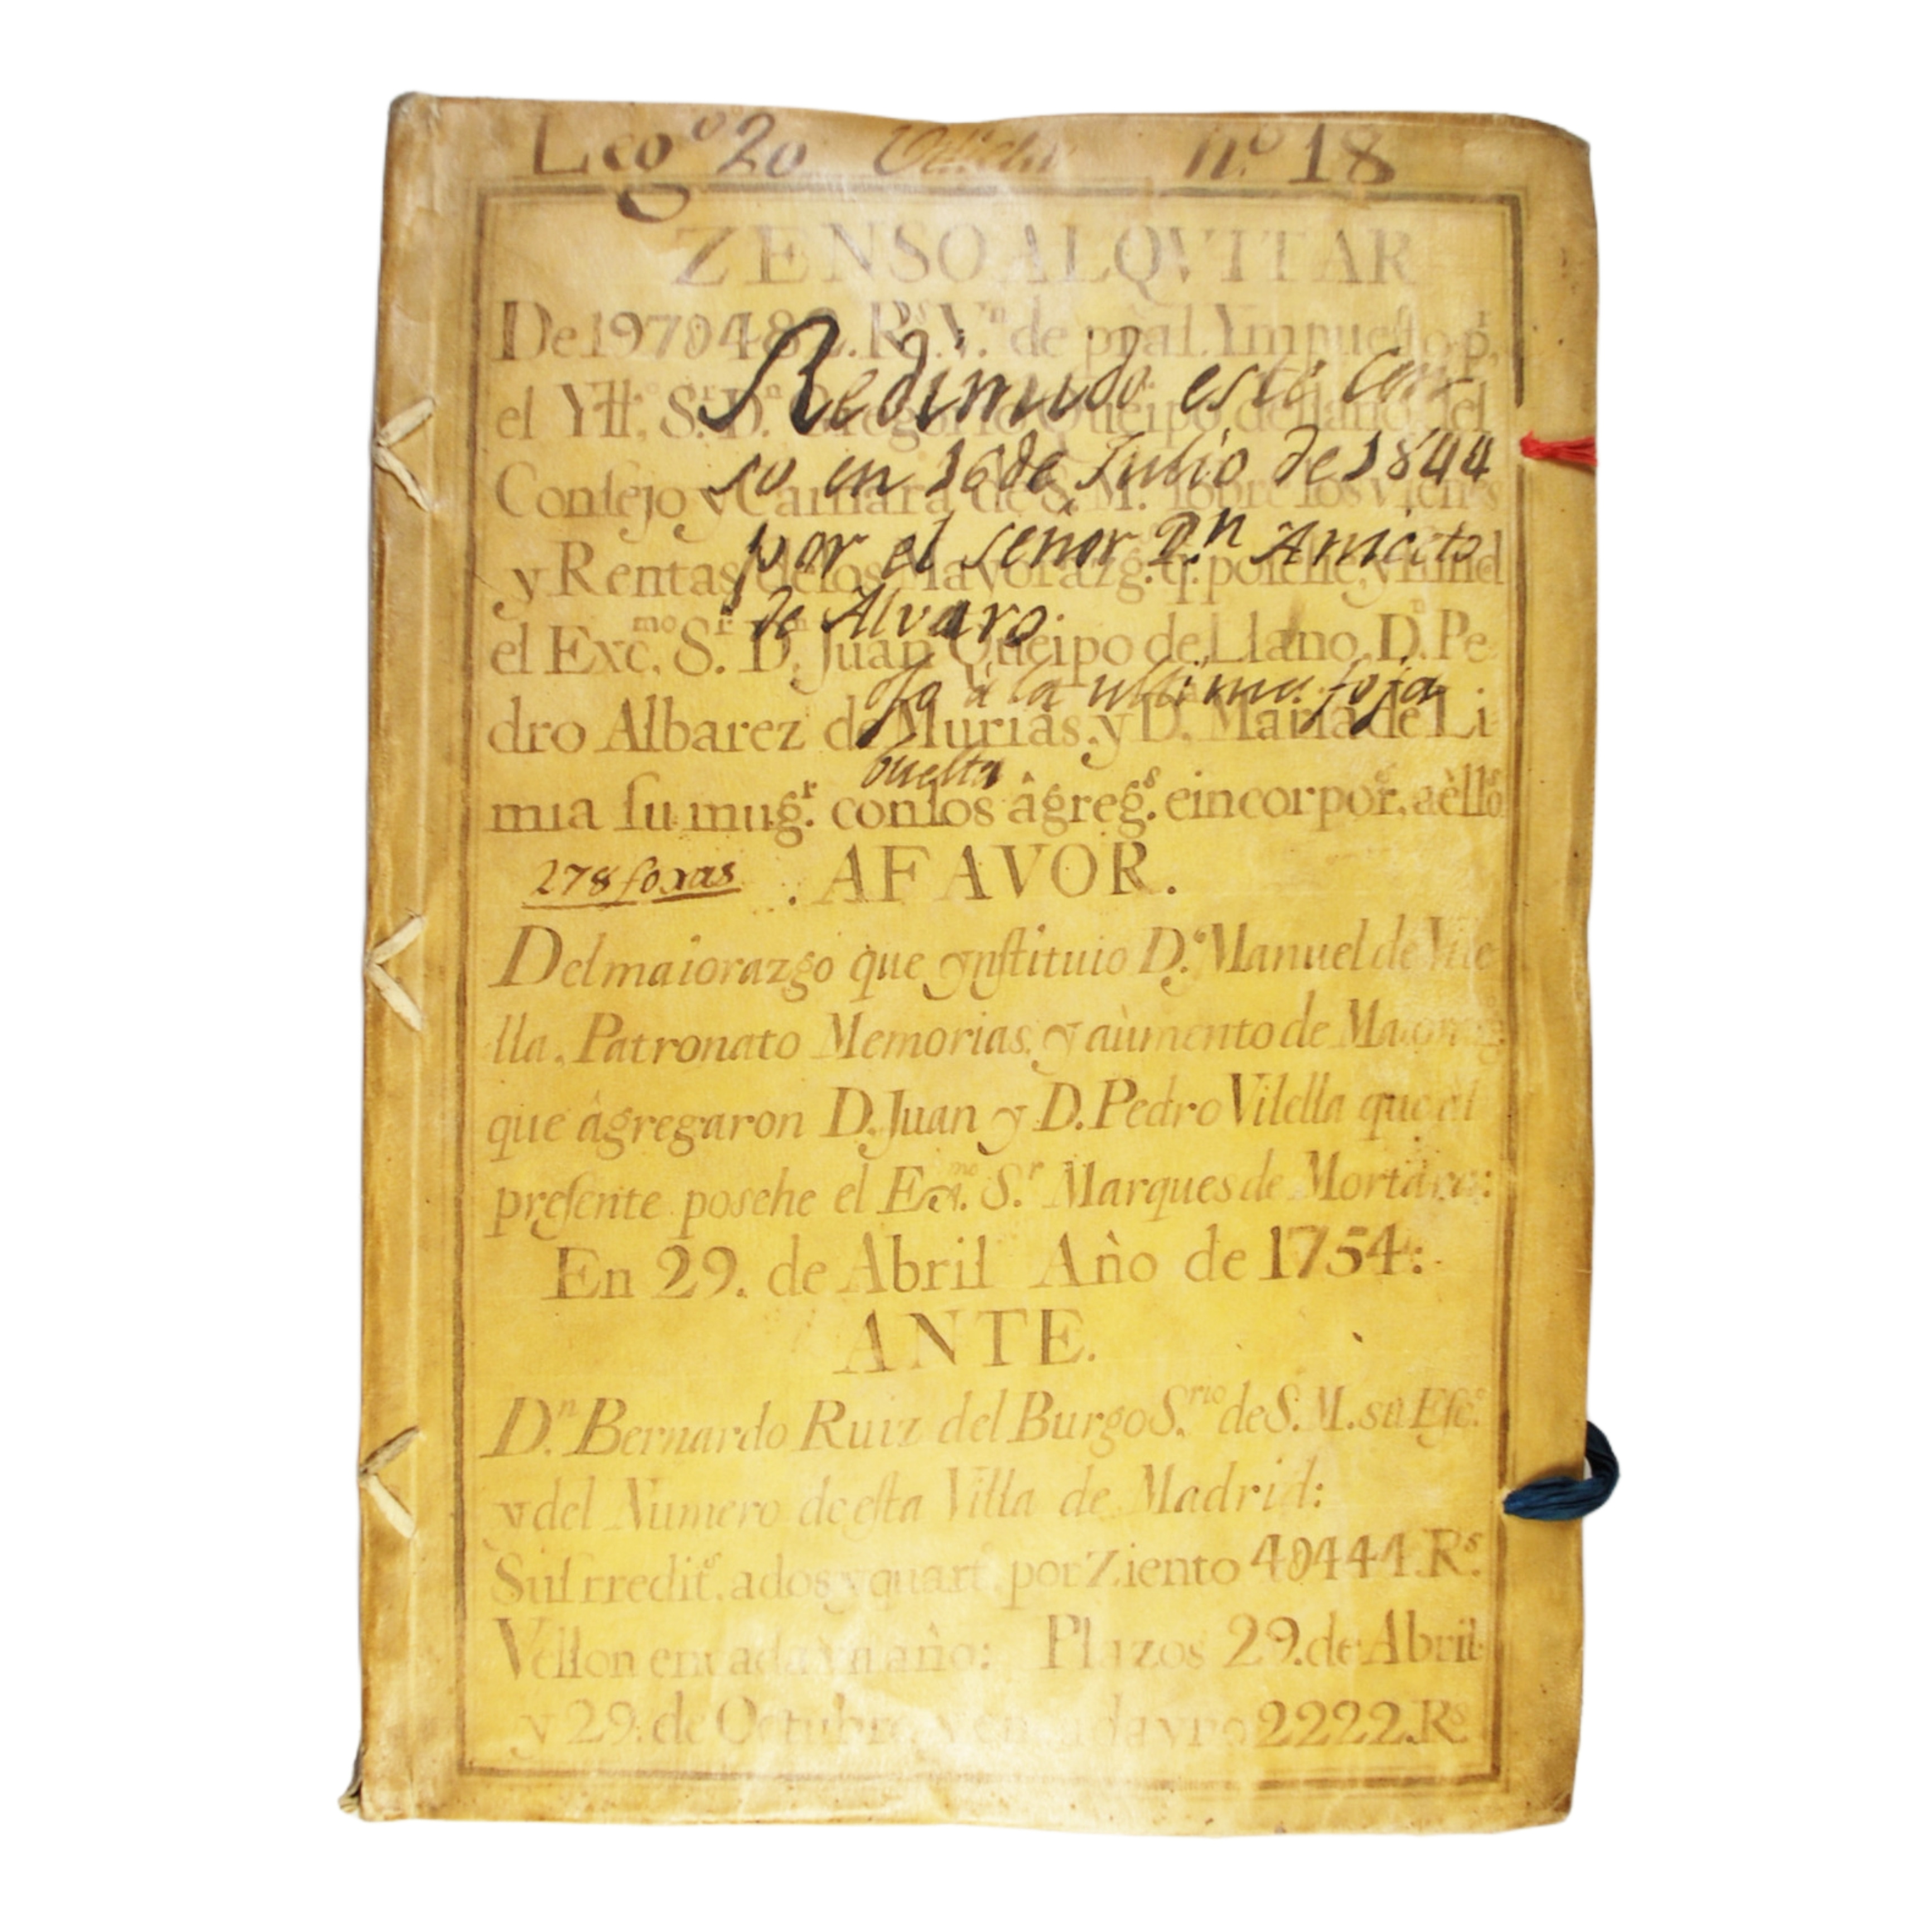 Leg.º 20 n.º 18
ZENSO ALQVITAR
De 1970482. R.s V.n de pñal. Ympuesto p.r
el Yll.º S.r D.n Gregorio Queipo de llano del
Consejo y Camara de S. M. sobre los vienes
y Rentas de los Mayorazg.s q. posehe, y fund
el Exc.mo S.r D.n Juan Queipo de Llano, D.n Pe
dro Albarez de Murias, y D.ª Maria de Li
mia su mug.r con los âgreg.s e incorpor.s aèllos
Redimido este Cen
so en 16 de Julio de 1844
por el señor D.n Aniceto
de Alvaro.
ojo à la ultima foja
buelta
278 foxas
. AFAVOR.
Del maiorazgo que ynstituio D.n Manuel de Vile
lla, Patronato Memorias, y aùmento de Maioraz
que àgregaron D. Juan y D. Pedro Vilella que al
presente posehe el Ex.mo S.r Marques de Mortara:
En 29. de Abril Año de 1754:
ANTE.
D.n Bernardo Ruiz del Burgo S.rio de S. M. su Esc.º
y del Numero de esta Villa de Madrid:
Sus rredit.s, a dos y quart.º por Ziento 40444. R.s
Vellon en cada vn año: Plazos 29. de Abril
y 29. de Octubre, y en cada vno 2222. R.s